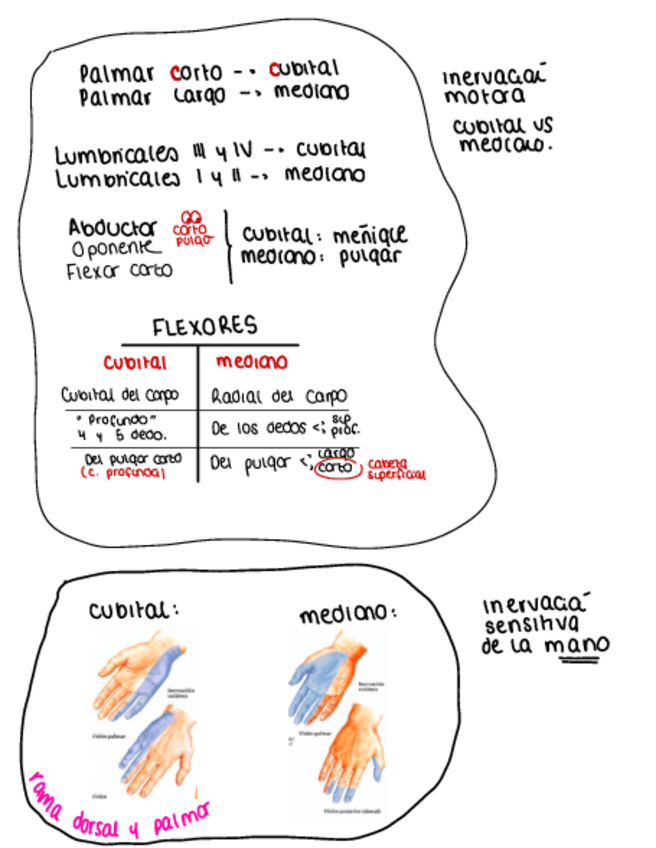 Palmar corto --> cubital
Palmar Largo --> mediano
inervación
motora
cubital vs
mediano.
Lumbricales III y IV --> cubital
Lumbricales I y II --> mediano
Abductor corto pulgar
Oponente
Flexor corto
cubital: meñique
mediano: pulgar
FLEXORES
cubital mediano
Cubital del carpo Radial del carpo
"Profundo" 4 y 5 dedo. De los dedos <: sup. prof.
Del pulgar corto (c. profunda) Del pulgar <: largo corto cabeza superficial
cubital: mediano:
inervación
sensitiva
de la mano
Inervación cutánea
Inervación cutánea
Visión palmar
Visión palmar
Visión
Visión posterior (dorsal)
rama dorsal y palmar